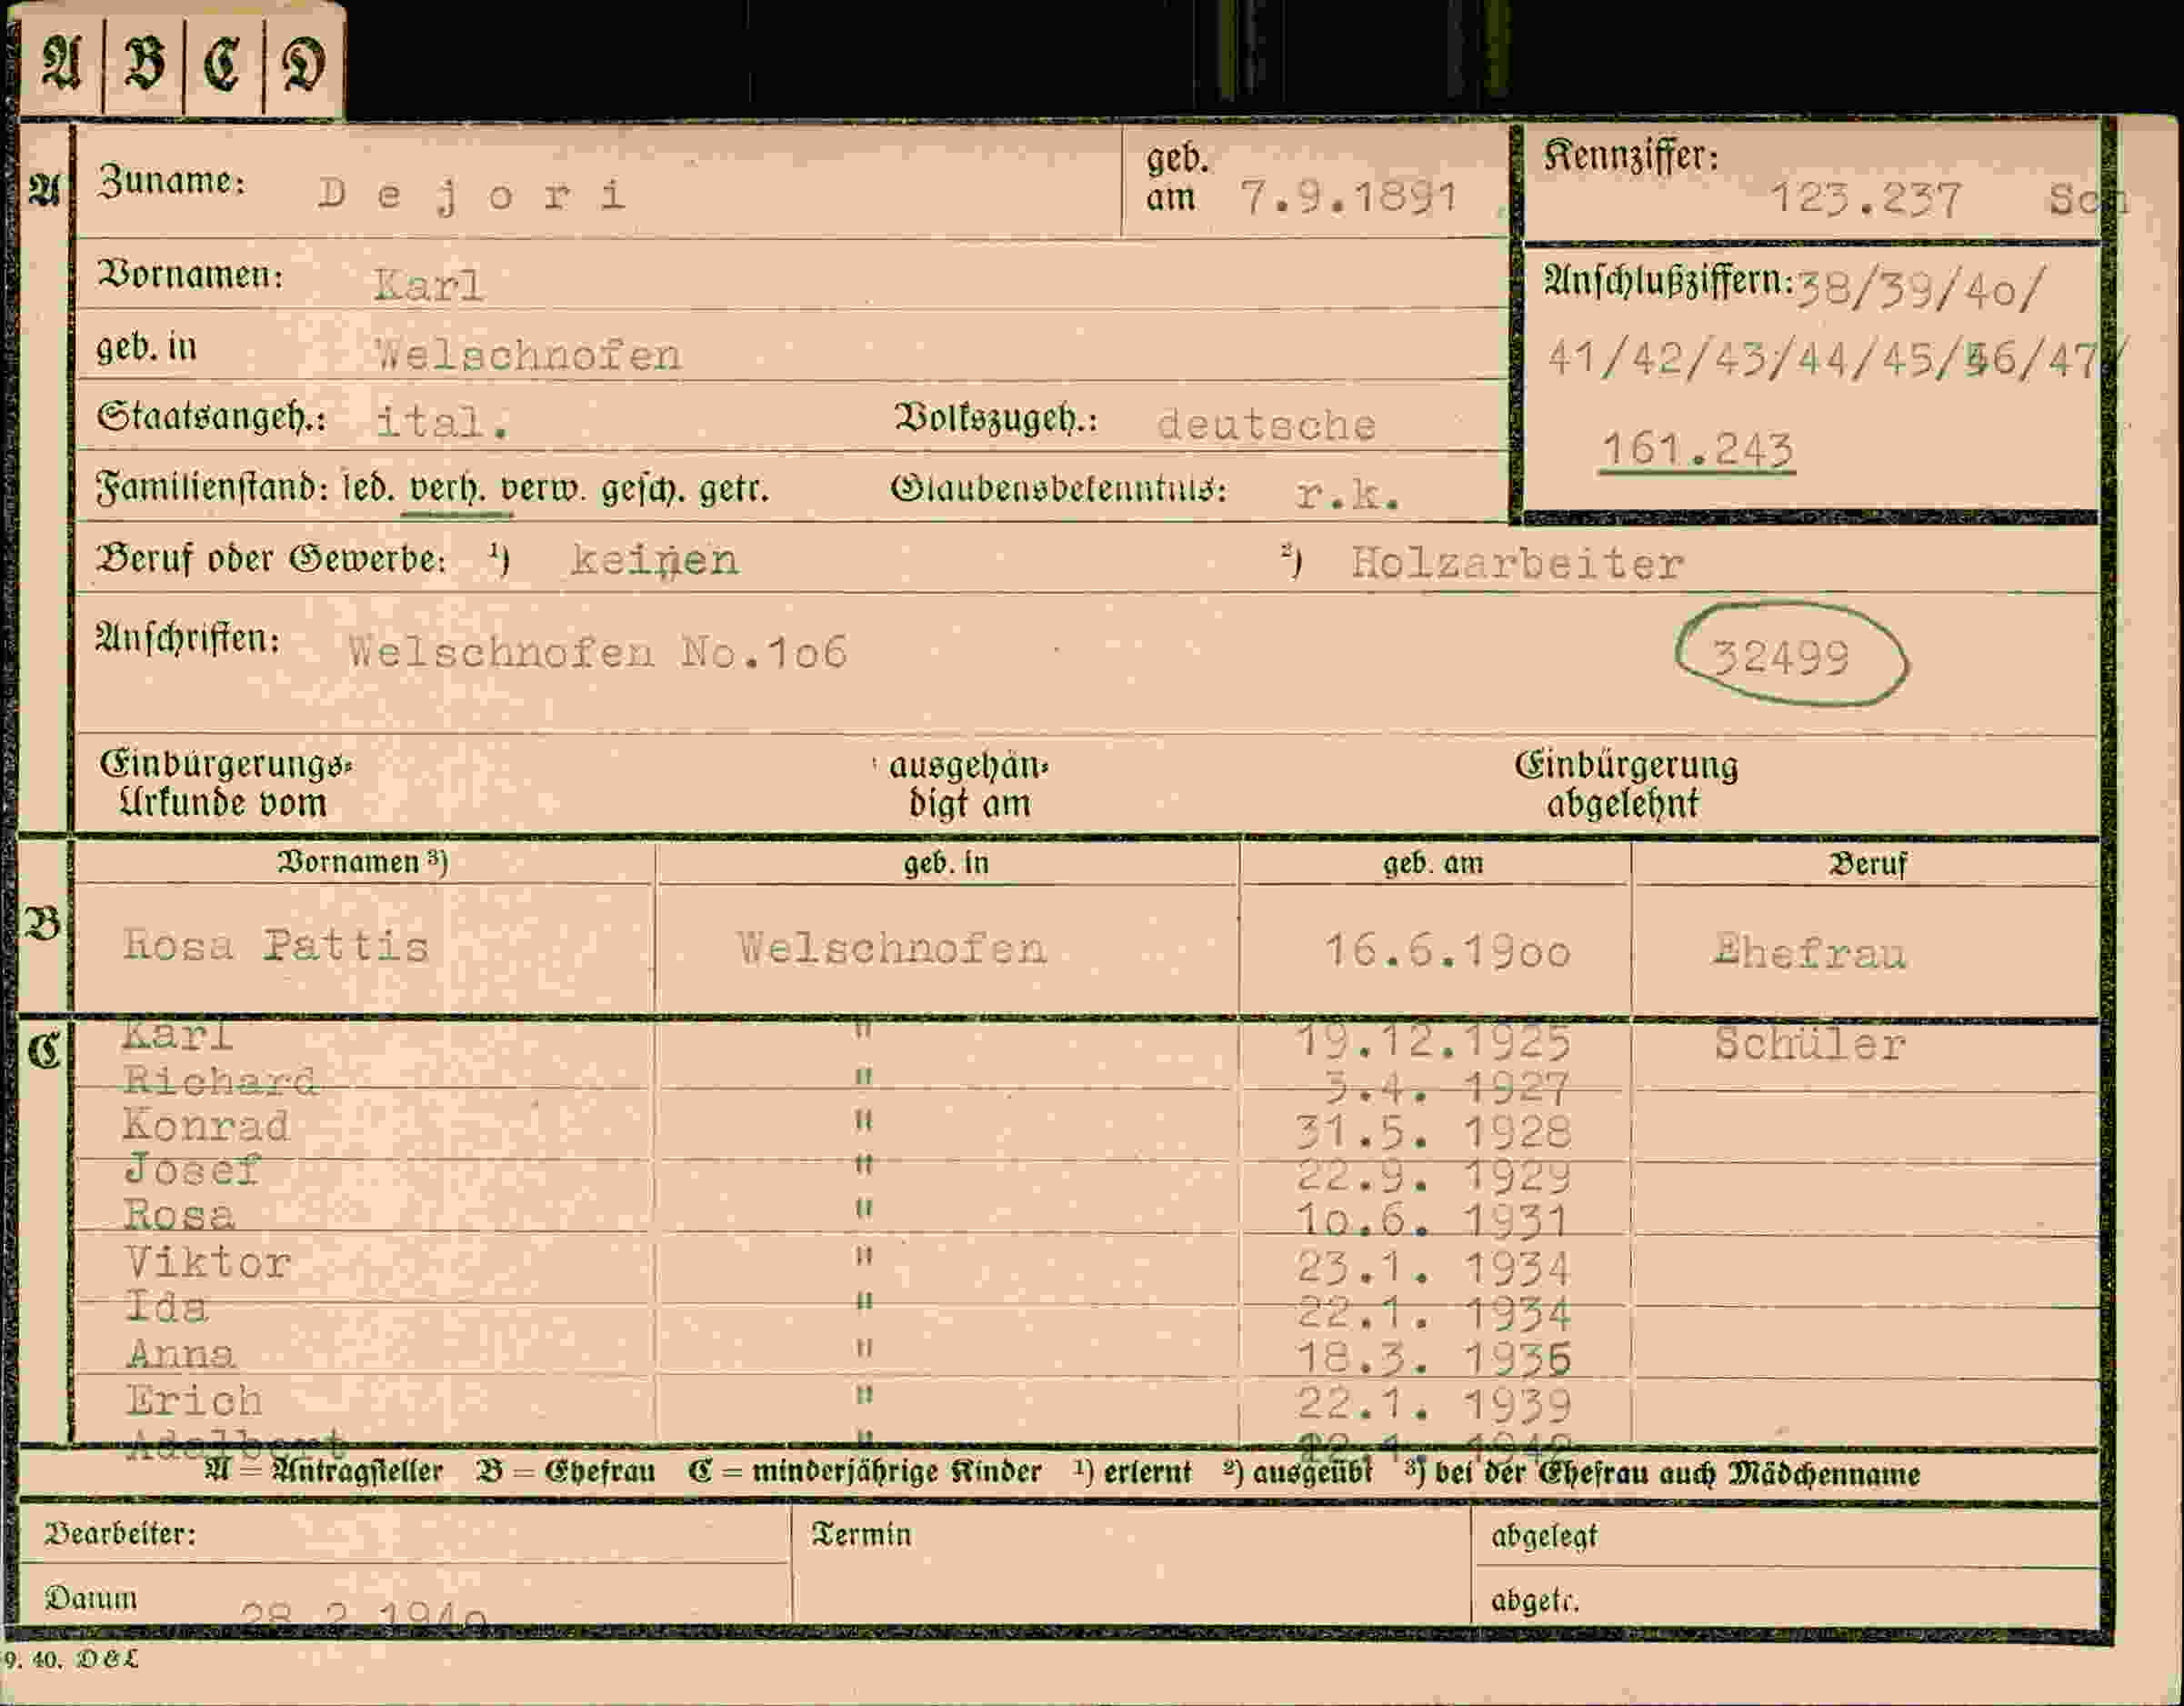 A B C D
A Zuname: Dejori geb. am 7.9.1891 Kennziffer: 123.237 Sch
Vornamen: Karl Anschlußziffern: 38/39/4o/
geb. in Welschnofen 41/42/43/44/45/46/47/
Staatsangeh.: ital. Volkszugeh.: deutsche 161.243
Familienstand: led. verh. verw. gesch. getr. Glaubensbekenntnis: r.k.
Beruf oder Gewerbe: ¹) keinen ²) Holzarbeiter
Anschriften: Welschnofen No.1o6 32499
Einbürgerungs- ausgehän- Einbürgerung
Urkunde vom digt am abgelehnt
Vornamen ³) geb. in geb. am Beruf
B Rosa Pattis Welschnofen 16.6.19oo Ehefrau
C Karl " 19.12.1925 Schüler
Richard " 3.4. 1927
Konrad " 31.5. 1928
Josef " 22.9. 1929
Rosa " 1o.6. 1931
Viktor " 23.1. 1934
Ida " 22.1. 1934
Anna " 18.3. 1936
Erich " 22.1. 1939
Adalbert "
A = Antragsteller B = Ehefrau C = minderjährige Kinder ¹) erlernt ²) ausgeübt ³) bei der Ehefrau auch Mädchenname
Bearbeiter: Termin abgelegt
Datum 28.2.194o abgetr.
9. 40. D&L